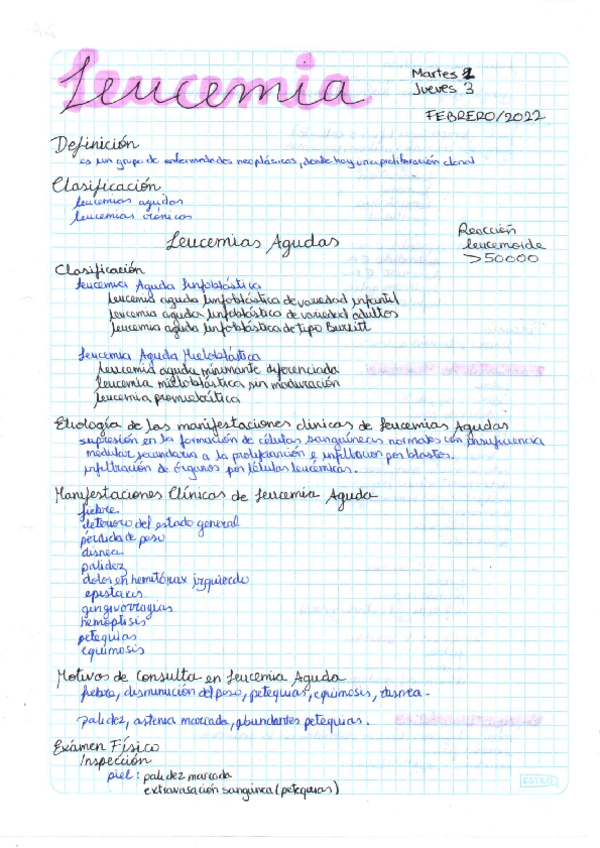 Leucemia
Martes 1
Jueves 3
FEBRERO/2022
Definición
es un grupo de enfermedades neoplásicas, donde hay una proliferación clonal
Clasificación
leucemias agudas
leucemias crónicas
Leucemias Agudas
Reacción
leucemoide
>50000
Clasificación
Leucemia Aguda linfoblástica
leucemia aguda linfoblástica de variedad infantil
leucemia aguda linfoblástica de variedad adultos
leucemia aguda linfoblástica de tipo Burkitt
Leucemia Aguda Mieloblástica
Leucemia aguda minimante diferenciada
Leucemia mieloblástica sin maduración
Leucemia promielocítica
Etiología de las manifestaciones clínicas de Leucemias Agudas
supresión en la formación de células sanguíneas normales con insuficiencia
medular secundaria a la proliferación e infiltración por blastos.
infiltración de órganos por células leucémicas.
Manifestaciones Clínicas de Leucemia Aguda
fiebre
deterioro del estado general
pérdida de peso
disnea
palidez
dolor en hemitórax izquierdo
epistaxis
gingivorragias
hemoptisis
petequias
equimosis
Motivos de Consulta en Leucemia Aguda
fiebre, disminución del peso, petequias, equimosis, disnea -
palidez, astenia marcada, abundantes petequias.
Exámen Físico
Inspección
piel: palidez marcada
extravasación sanguínea (petequias)
ESTILO